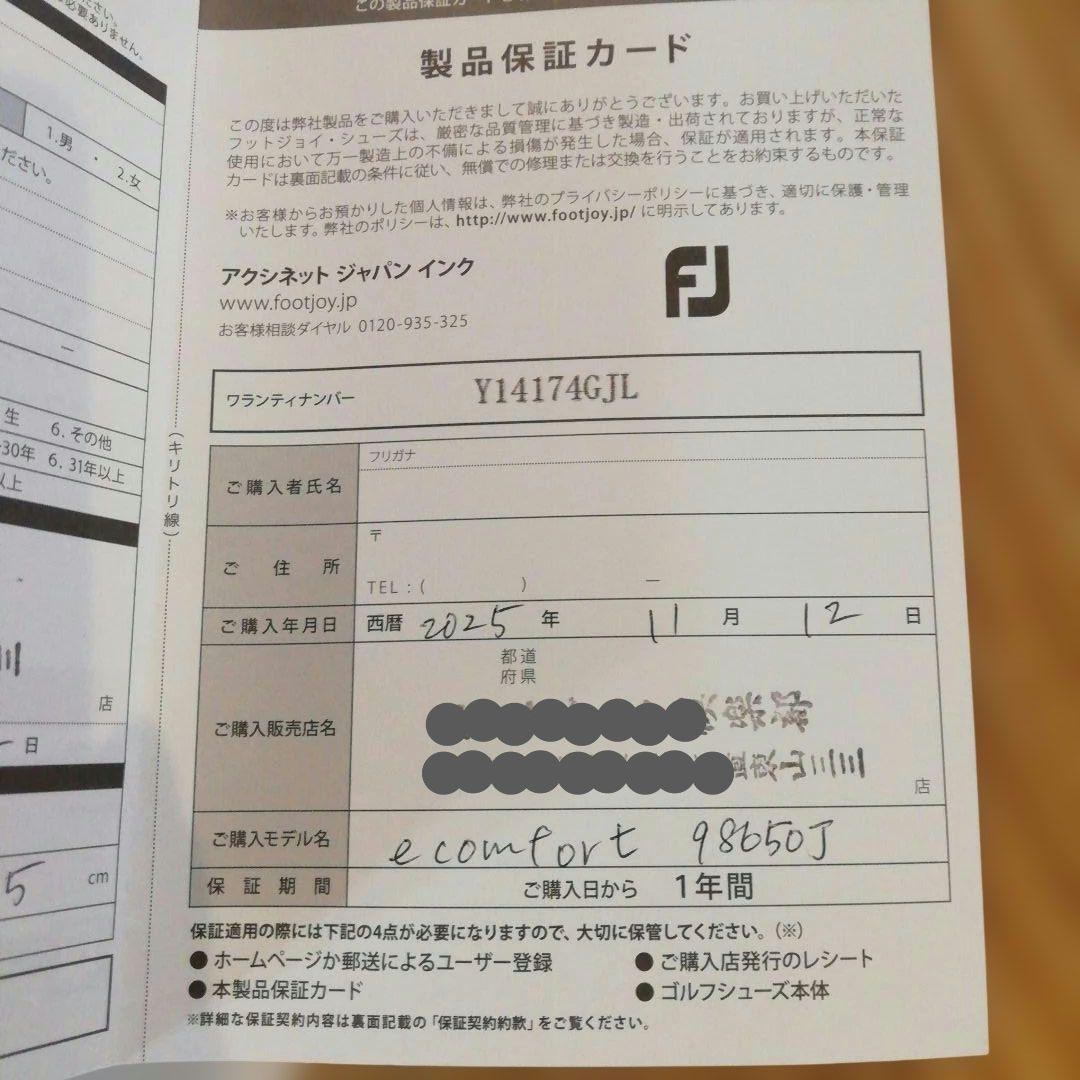 必要ありません。
1.男 ・ 2.女
ださい。
生 6.その他
30年 6.31年以上
以上
店
日
5 cm
(キリトリ線)
製品保証カード
この度は弊社製品をご購入いただきまして誠にありがとうございます。お買い上げいただいた
フットジョイ・シューズは、厳密な品質管理に基づき製造・出荷されておりますが、正常な
使用において万一製造上の不備による損傷が発生した場合、保証が適用されます。本保証
カードは裏面記載の条件に従い、無償での修理または交換を行うことをお約束するものです。
※お客様からお預かりした個人情報は、弊社のプライバシーポリシーに基づき、適切に保護・管理
いたします。弊社のポリシーは、http://www.footjoy.jp/ に明示してあります。
アクシネット ジャパン インク
www.footjoy.jp
お客様相談ダイヤル 0120-935-325
FJ
ワランティナンバー Y14174GJL
フリガナ
ご購入者氏名
〒
ご住所
TEL:( ) ―
ご購入年月日 西暦 2025 年 11 月 12 日
都道
府県
ご購入販売店名
店
ご購入モデル名 ecomfort 98650J
保証期間 ご購入日から 1年間
保証適用の際には下記の4点が必要になりますので、大切に保管してください。(※)
● ホームページか郵送によるユーザー登録 ● ご購入店発行のレシート
● 本製品保証カード ● ゴルフシューズ本体
※詳細な保証契約内容は裏面記載の「保証契約約款」をご覧ください。